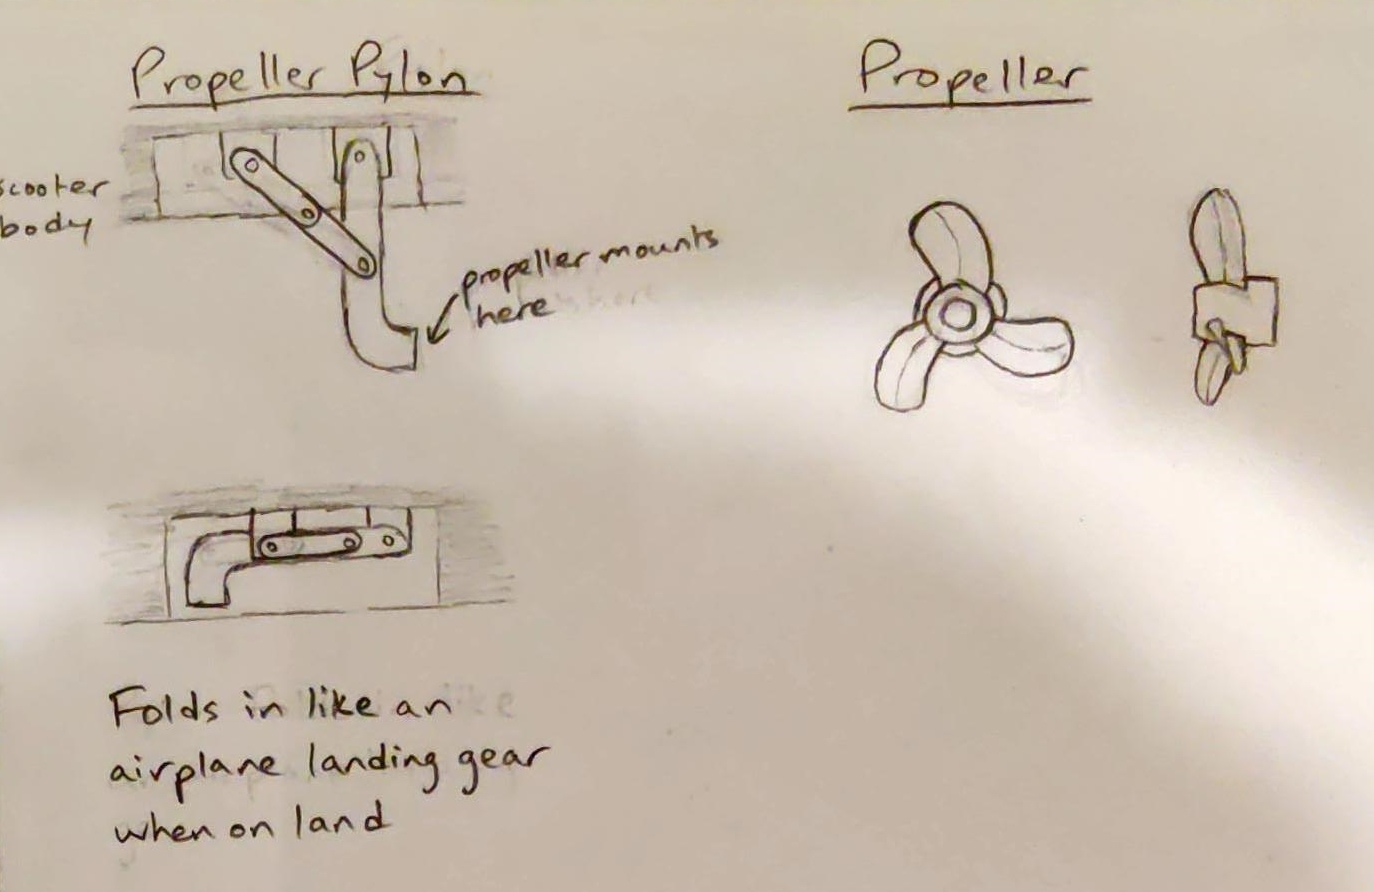 Propeller Pylon
Propeller
scooter
body
propeller mounts
here
Folds in like an
airplane landing gear
when on land